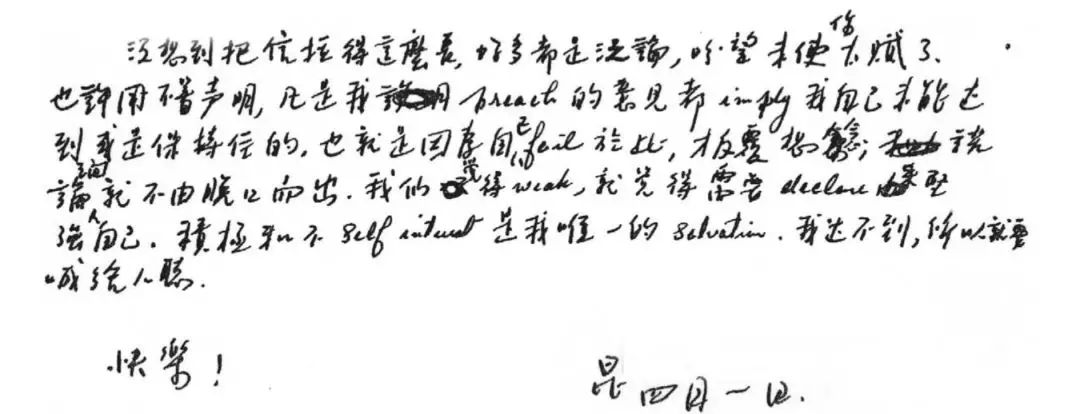 没想到把信拉得這麼長,好多都是泛論,盼望未使你太膩了、
也許用不着声明,凡是我 preach 的意見都 imply 我自己未能达
到或是保持住的,也就是因為自己 fail 於此,才反覆想念;
論調就不由脫口而出.我們覺得 weak,就覺得需要 declare 來堅
強自己.積極和不 self interest 是我唯一的 salvation.我达不到,所以就要
喊给人聽.
快樂!
昆 四月一日.